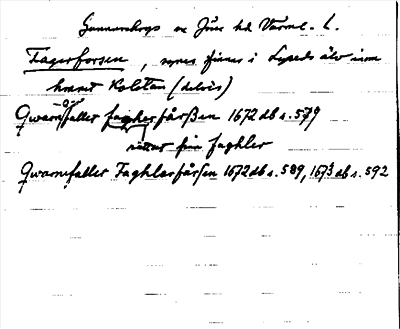 Gunnarskogs sn Jösse hd Värml. l.
Fagerforsen, synes finnas i Lyseds älv inom
hemmet Kolstan (delvis)
Qwarnefallet fagherfårßen 1672 db s. 579
rättat från faghler
Qwarnefallet Faghlarfårßen 1672 db s. 589, 1673 db s. 592